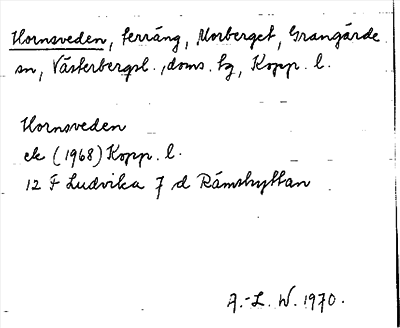 Hornsveden, terräng, Morberget, Grangärde
sn, Västerbergsl., doms. tg, Kopp. l.
Hornsveden
ek (1968) Kopp. l.
12 F Ludvika 7 d Rämshyttan
A.-L. W. 1970.